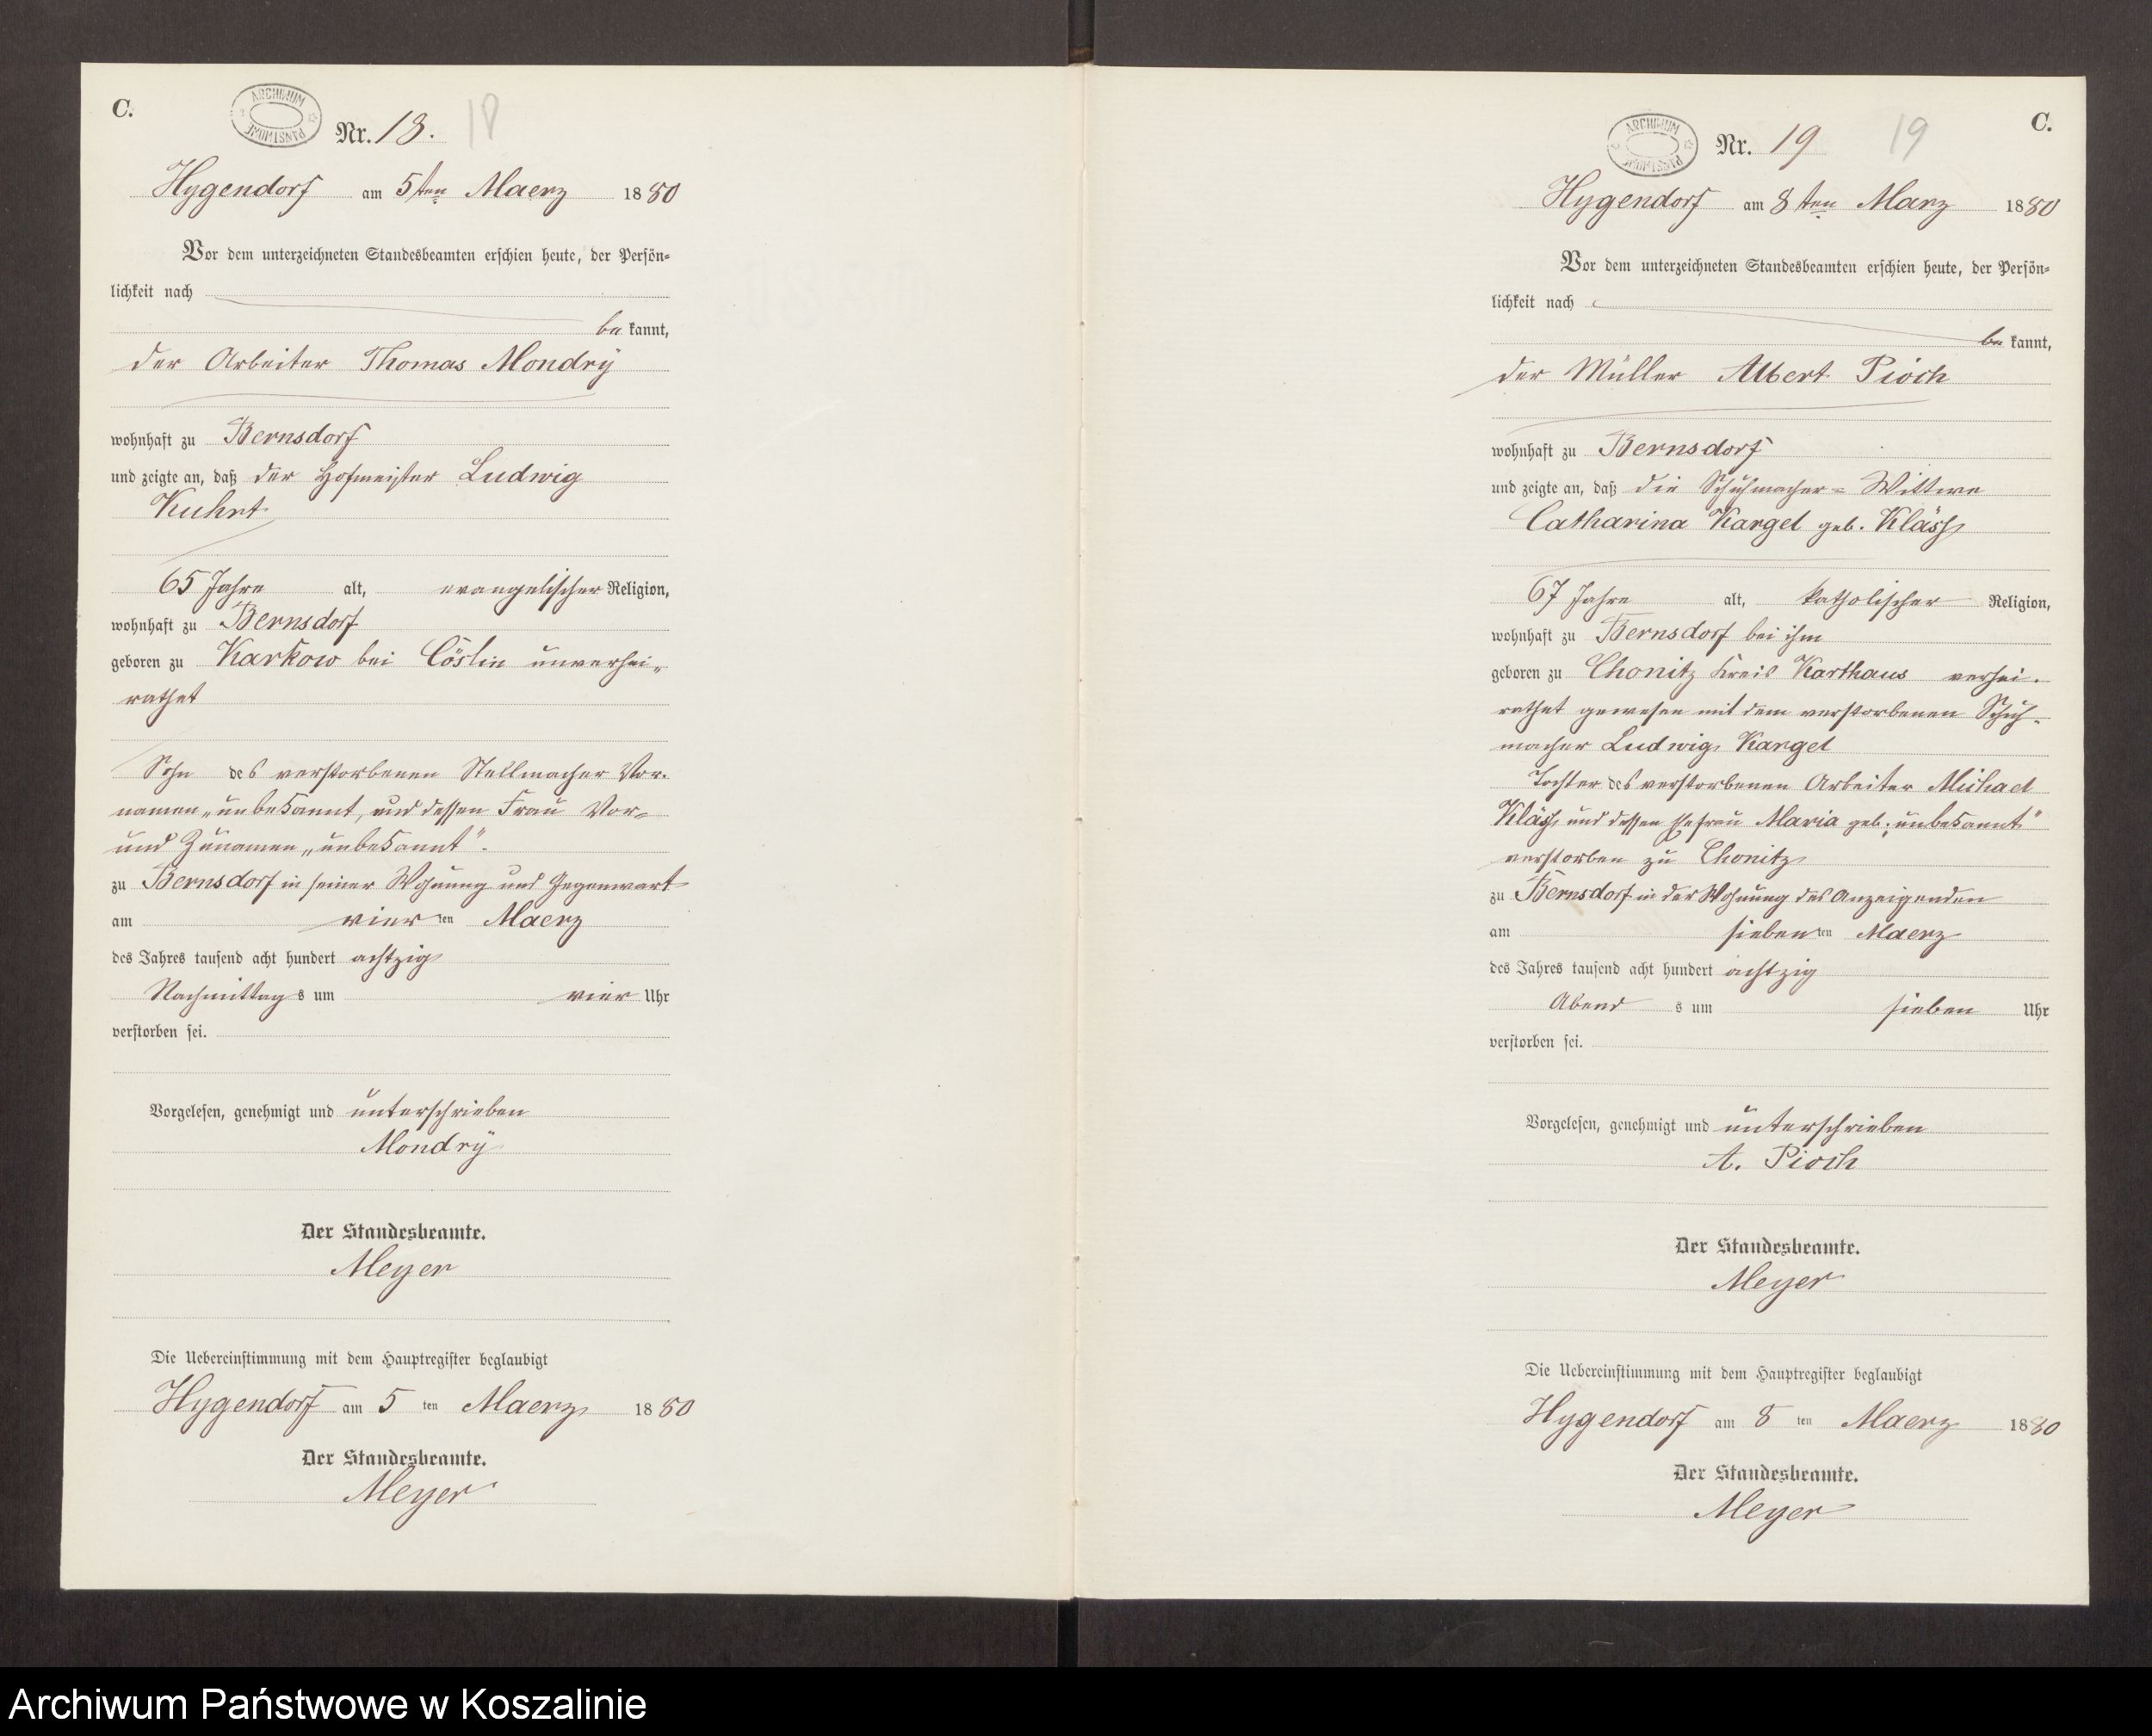 C.
ARCHIWUM PAŃSTWOWE
Nr. 18. 18
Hygendorf am 5ten Maerz 1880
Vor dem unterzeichneten Standesbeamten erschien heute, der Persön=
lichkeit nach
be kannt,
der Arbeiter Thomas Mondry
wohnhaft zu Bernsdorf
und zeigte an, daß der Hofmeister Ludwig
Kuhrt
65 Jahre alt, evangelischer Religion,
wohnhaft zu Bernsdorf
geboren zu Karkow bei Cöslin unverhei-
rathet
Sohn des verstorbenen Stellmacher Vor-
namen „unbekannt, und dessen Frau Vor=
und Zunamen „unbekannt".
zu Bernsdorf in seiner Wohnung und Gegenwart
am vier ten Maerz
des Jahres tausend acht hundert achtzig
Nachmittag s um vier Uhr
verstorben sei.
Vorgelesen, genehmigt und unterschrieben
Mondry
Der Standesbeamte.
Meyer
Die Uebereinstimmung mit dem Hauptregister beglaubigt
Hygendorf am 5 ten Maerz 1880
Der Standesbeamte.
Meyer
C.
ARCHIWUM PAŃSTWOWE
Nr. 19 19
Hygendorf am 8ten Marz 1880
Vor dem unterzeichneten Standesbeamten erschien heute, der Persön=
lichkeit nach
be kannt,
der Müller Albert Pioch
wohnhaft zu Bernsdorf
und zeigte an, daß die Schuhmacher= Wittwe
Catharina Kargel geb. Kläss
67 Jahre alt, katholischer Religion,
wohnhaft zu Bernsdorf bei ihm
geboren zu Chonitz Kreis Karthaus verhei-
rathet gewesen mit dem verstorbenen Schuh-
macher Ludwig Kargel
Tochter des verstorbenen Arbeiter Michael
Kläss, und dessen Ehefrau Maria geb. „unbekannt"
verstorben zu Chonitz
zu Bernsdorf in der Wohnung des Anzeigenden
am sieben ten Maerz
des Jahres tausend acht hundert achtzig
Abend s um sieben Uhr
verstorben sei.
Vorgelesen, genehmigt und unterschrieben
A. Pioch
Der Standesbeamte.
Meyer
Die Uebereinstimmung mit dem Hauptregister beglaubigt
Hygendorf am 8 ten Maerz 1880
Der Standesbeamte.
Meyer
Archiwum Państwowe w Koszalinie